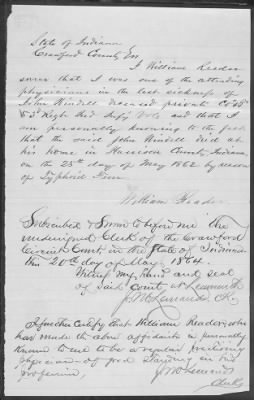 State of Indiana
Crawford County, Ss,
I William Reader
swear that I was one of the attending
physicians in the last sickness of
John Windell deceased private Co
Regt Ind Infy Vols and that I
am personally knowing to the fact
that the said John Windell died at
his home in Harrison County, Indiana,
on the 28th day of May 1862 by reason
of Typhoid Fever
William Reader
Subscribed & Sworn to before me the
undersigned Clerk of the Crawford
Circuit Court in the State of Indiana
this 20th day of May 1864.
Witness my hand and seal
of said Court at Leavenworth
I further certify that William Reader who
has made the above affidavit is personally
known to me to be a regular practicing
physician of good standing in his
profession.
Clerk